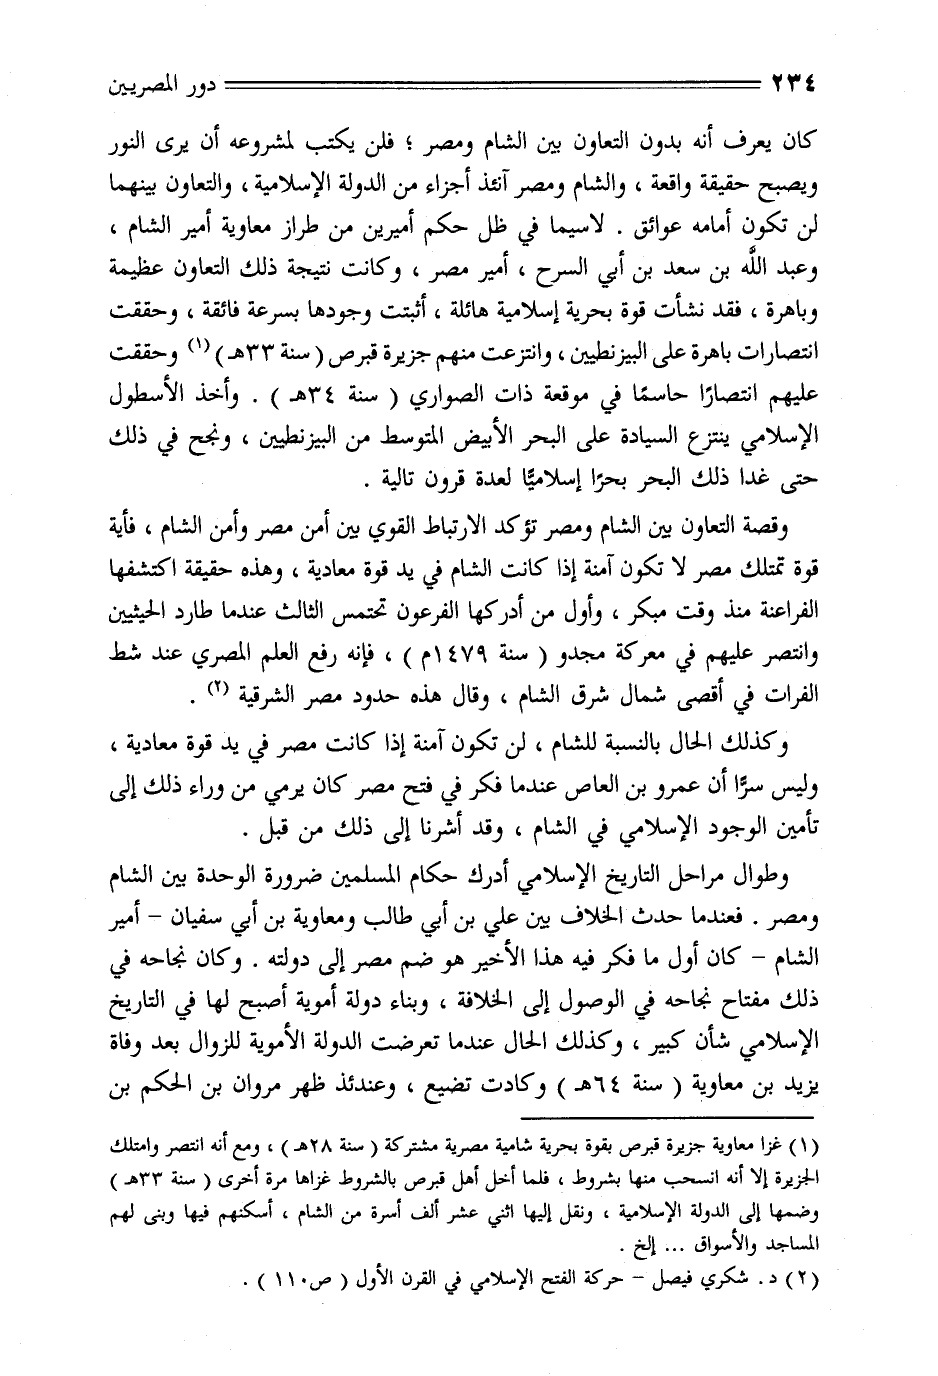 ٢٣٤ دور المصريين
كان يعرف أنه بدون التعاون بين الشام ومصر ؛ فلن يكتب لمشروعه أن يرى النور
ويصبح حقيقة واقعة ، والشام ومصر آنئذ أجزاء من الدولة الإسلامية ، والتعاون بينهما
لن تكون أمامه عوائق . لاسيما في ظل حكم أميرين من طراز معاوية أمير الشام ،
وعبد اللَّه بن سعد بن أبي السرح ، أمير مصر ، وكانت نتيجة ذلك التعاون عظيمة
وباهرة ، فقد نشأت قوة بحرية إسلامية هائلة ، أثبتت وجودها بسرعة فائقة ، وحققت
انتصارات باهرة على البيزنطيين ، وانتزعت منهم جزيرة قبرص ( سنة ٣٣هـ )(١) وحققت
عليهم انتصارًا حاسمًا في موقعة ذات الصواري ( سنة ٣٤هـ ) . وأخذ الأسطول
الإسلامي ينتزع السيادة على البحر الأبيض المتوسط من البيزنطيين ، ونجح في ذلك
حتى غدا ذلك البحر بحرًا إسلاميًّا لعدة قرون تالية .
وقصة التعاون بين الشام ومصر تؤكد الارتباط القوي بين أمن مصر وأمن الشام ، فأية
قوة تمتلك مصر لا تكون آمنة إذا كانت الشام في يد قوة معادية ، وهذه حقيقة اكتشفها
الفراعنة منذ وقت مبكر ، وأول من أدركها الفرعون تحتمس الثالث عندما طارد الحيثيين
وانتصر عليهم في معركة مجدو ( سنة ١٤٧٩م ) ، فإنه رفع العلم المصري عند شط
الفرات في أقصى شمال شرق الشام ، وقال هذه حدود مصر الشرقية (٢) .
وكذلك الحال بالنسبة للشام ، لن تكون آمنة إذا كانت مصر في يد قوة معادية ،
وليس سرًّا أن عمرو بن العاص عندما فكر في فتح مصر كان يرمي من وراء ذلك إلى
تأمين الوجود الإسلامي في الشام ، وقد أشرنا إلى ذلك من قبل .
وطوال مراحل التاريخ الإسلامي أدرك حكام المسلمين ضرورة الوحدة بين الشام
ومصر . فعندما حدث الخلاف بين علي بن أبي طالب ومعاوية بن أبي سفيان - أمير
الشام - كان أول ما فكر فيه هذا الأخير هو ضم مصر إلى دولته . وكان نجاحه في
ذلك مفتاح نجاحه في الوصول إلى الخلافة ، وبناء دولة أموية أصبح لها في التاريخ
الإسلامي شأن كبير ، وكذلك الحال عندما تعرضت الدولة الأموية للزوال بعد وفاة
يزيد بن معاوية ( سنة ٦٤هـ ) وكادت تضيع ، وعندئذ ظهر مروان بن الحكم بن
(١) غزا معاوية جزيرة قبرص بقوة بحرية شامية مصرية مشتركة ( سنة ٢٨هـ ) ، ومع أنه انتصر وامتلك
الجزيرة إلا أنه انسحب منها بشروط ، فلما أخل أهل قبرص بالشروط غزاها مرة أخرى ( سنة ٣٣هـ )
وضمها إلى الدولة الإسلامية ، ونقل إليها اثني عشر ألف أسرة من الشام ، أسكنهم فيها وبنى لهم
المساجد والأسواق ... إلخ .
(٢) د. شكري فيصل - حركة الفتح الإسلامي في القرن الأول ( ص١١٠ ) .